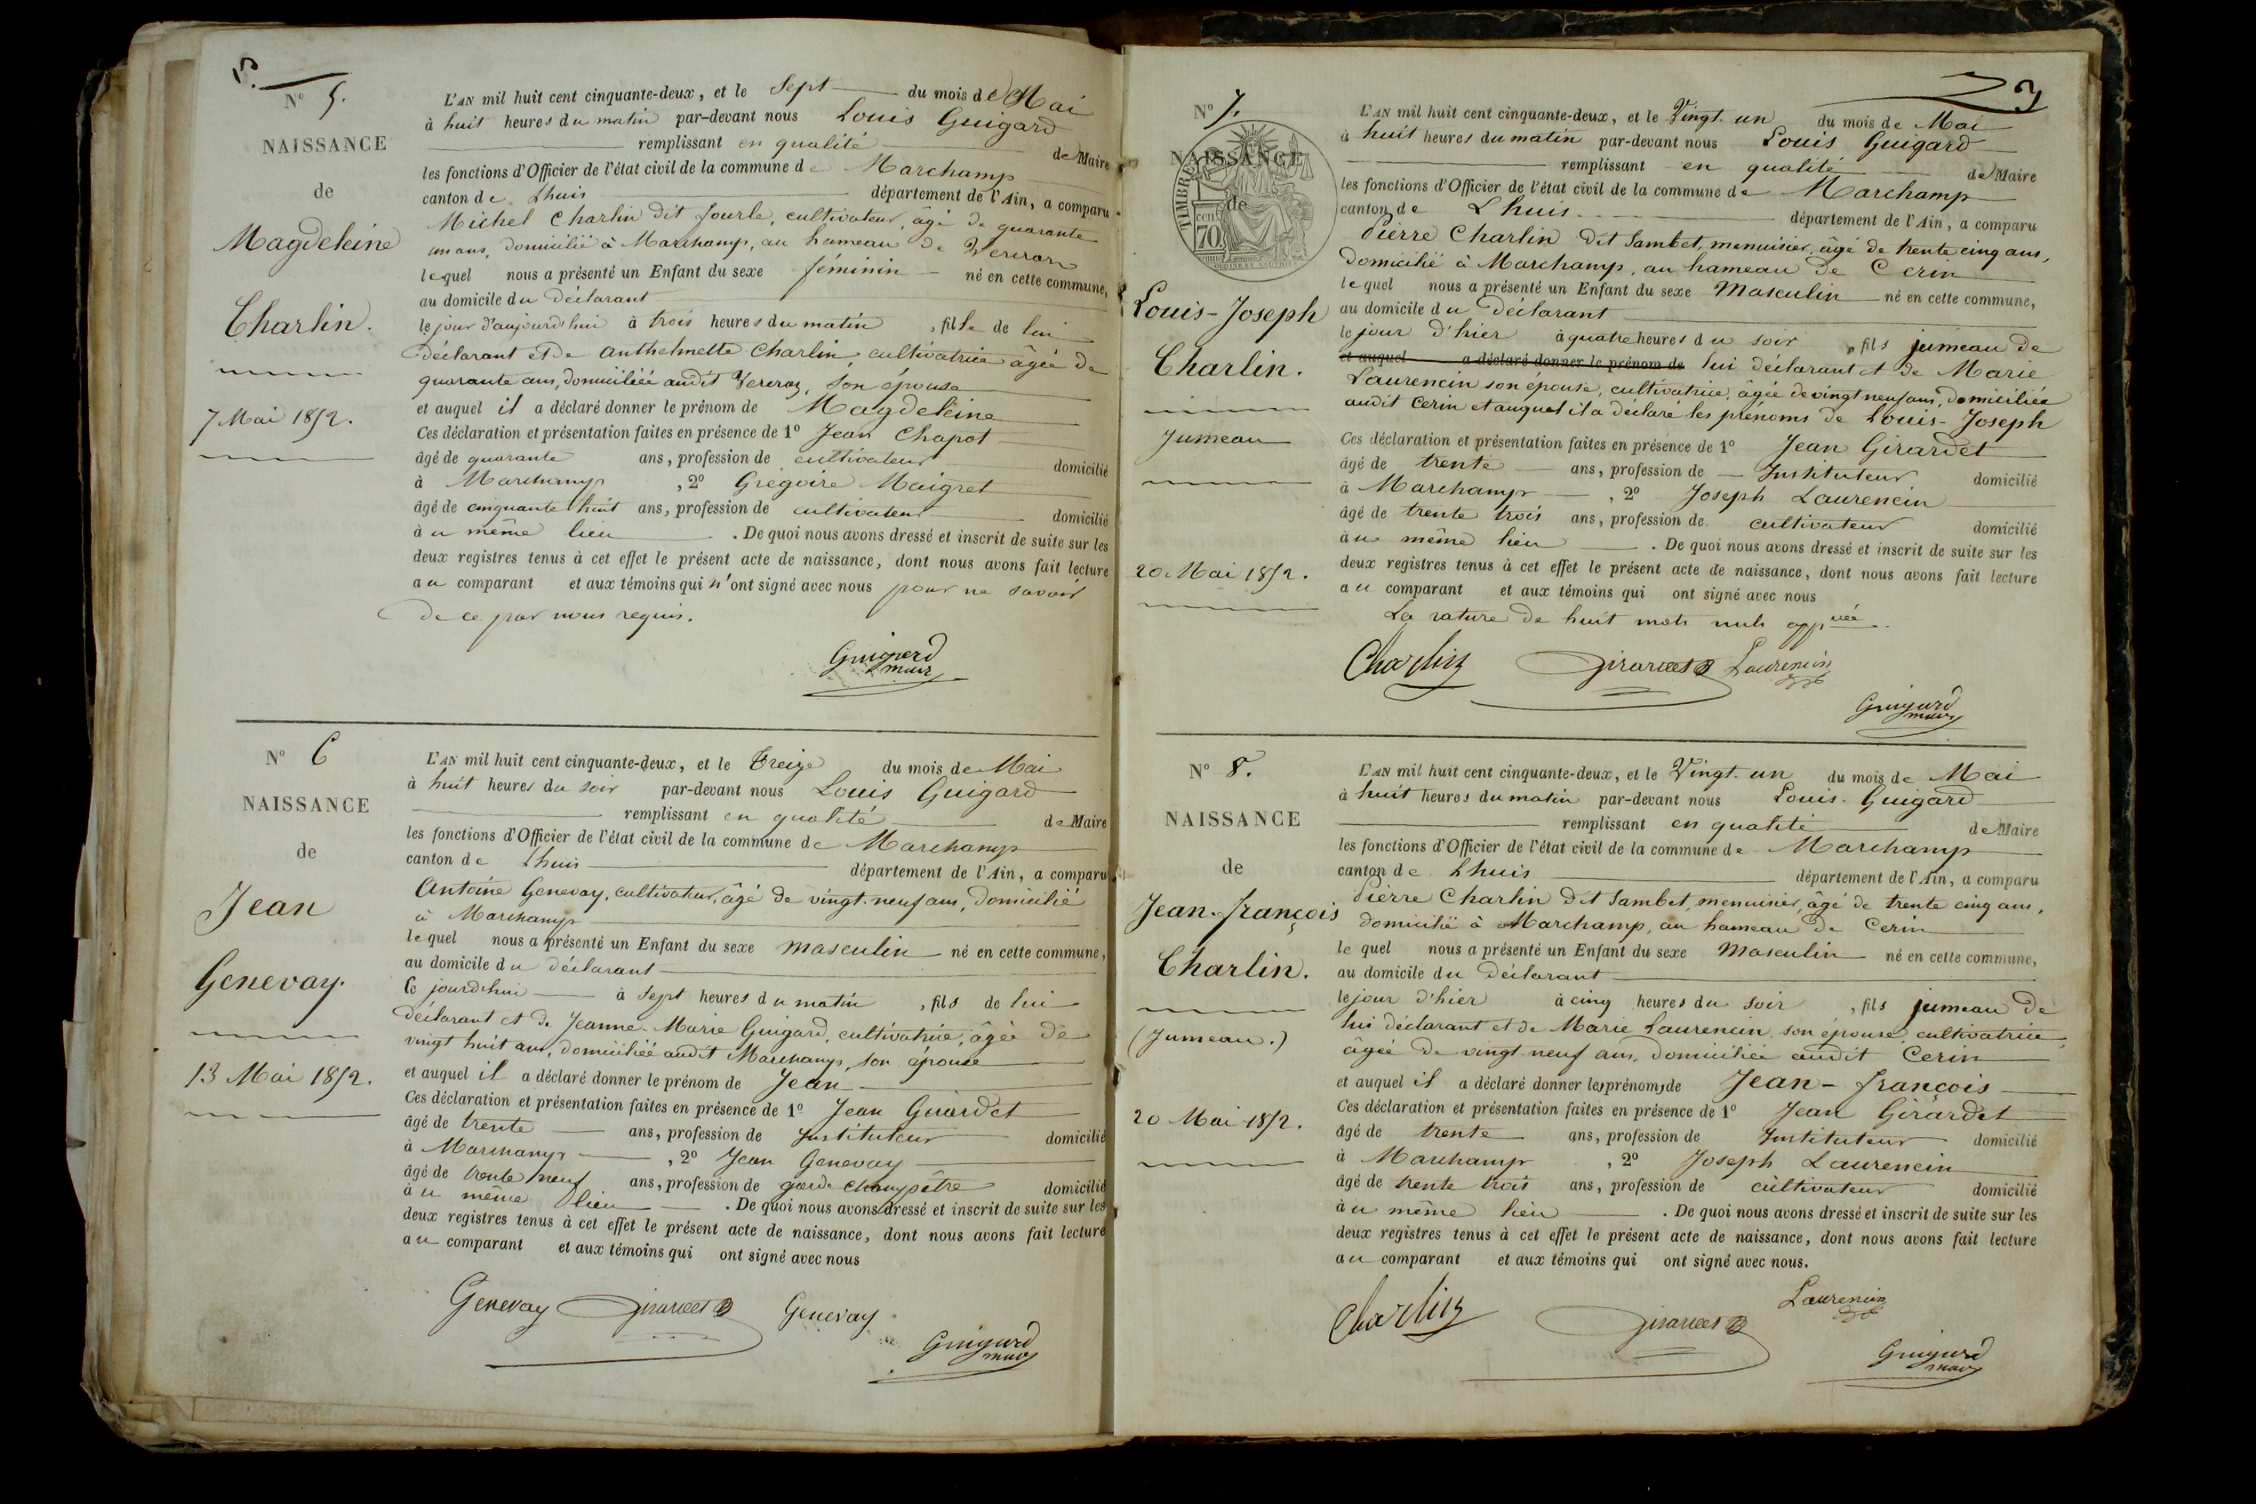 5.
N° 5.
NAISSANCE
de
Magdeleine
Charlin.
7 Mai 1852.
L'AN mil huit cent cinquante-deux, et le Sept du mois de Mai
à huit heures du matin par-devant nous Louis Guigard
remplissant en qualité de Maire
les fonctions d'Officier de l'état civil de la commune de Marchamp
canton de Lhuis département de l'Ain, a comparu
Michel Charlin dit Jourle, cultivateur, âgé de quarante
un ans, domicilié à Marchamp, au hameau de
lequel nous a présenté un Enfant du sexe féminin né en cette commune,
au domicile du déclarant
le jour d'aujourd'hui à trois heures du matin, fille de lui
déclarant et de Anthelmette Charlin cultivatrice âgée de
quarante ans, domiciliée audit son épouse
et auquel il a déclaré donner le prénom de Magdeleine
Ces déclaration et présentation faites en présence de 1° Jean Chapot
âgé de quarante ans, profession de cultivateur domicilié
à Marchamp, 2° Grégoire Maigret
âgé de cinquante huit ans, profession de cultivateur domicilié
au même lieu. De quoi nous avons dressé et inscrit de suite sur les
deux registres tenus à cet effet le présent acte de naissance, dont nous avons fait lecture
au comparant et aux témoins qui n'ont signé avec nous pour ne savoir
de ce par nous requis.
Guigard
maire
N° 6
NAISSANCE
de
Jean
Genevay.
13 Mai 1852.
L'AN mil huit cent cinquante-deux, et le Treize du mois de Mai
à huit heures du soir par-devant nous Louis Guigard
remplissant en qualité de Maire
les fonctions d'Officier de l'état civil de la commune de Marchamp
canton de Lhuis département de l'Ain, a comparu
Antoine Genevay, cultivateur, âgé de vingt-neuf ans, domicilié
à Marchamp
lequel nous a présenté un Enfant du sexe masculin né en cette commune,
au domicile du déclarant
Ce jourd'hui à sept heures du matin, fils de lui
déclarant et de Jeanne-Marie Guigard, cultivatrice, âgée de
vingt huit ans, domiciliée audit Marchamp, son épouse
et auquel il a déclaré donner le prénom de Jean
Ces déclaration et présentation faites en présence de 1° Jean Girardet
âgé de trente ans, profession de Instituteur domicilié
à Marchamp, 2° Jean Genevay
âgé de trente neuf ans, profession de garde champêtre domicilié
au même lieu. De quoi nous avons dressé et inscrit de suite sur les
deux registres tenus à cet effet le présent acte de naissance, dont nous avons fait lecture
au comparant et aux témoins qui ont signé avec nous
Genevay Girardet Genevay
Guigard
maire
3
N° 7.
NAISSANCE
de
TIMBRE
cent.
70
Louis-Joseph
Charlin.
Jumeau
20 Mai 1852.
L'AN mil huit cent cinquante-deux, et le Vingt-un du mois de Mai
à huit heures du matin par-devant nous Louis Guigard
remplissant en qualité de Maire
les fonctions d'Officier de l'état civil de la commune de Marchamp
canton de Lhuis département de l'Ain, a comparu
Pierre Charlin dit Sambet, menuisier, âgé de trente cinq ans,
domicilié à Marchamp, au hameau de Cerin
lequel nous a présenté un Enfant du sexe Masculin né en cette commune,
au domicile du déclarant
le jour d'hier à quatre heures du soir, fils jumeau de
et auquel a déclaré donner le prénom de lui déclarant et de Marie
Laurencin son épouse, cultivatrice, âgée de vingt neuf ans, domiciliée
audit Cerin et auquel il a déclaré les prénoms de Louis-Joseph
Ces déclaration et présentation faites en présence de 1° Jean Girardet
âgé de trente ans, profession de Instituteur domicilié
à Marchamp, 2° Joseph Laurencin
âgé de trente trois ans, profession de cultivateur domicilié
au même lieu. De quoi nous avons dressé et inscrit de suite sur les
deux registres tenus à cet effet le présent acte de naissance, dont nous avons fait lecture
au comparant et aux témoins qui ont signé avec nous
La rature de huit mots nuls appvée.
Charlin Girardet Laurencin
Guigard
maire
N° 8.
NAISSANCE
de
Jean-françois
Charlin.
(Jumeau.)
20 Mai 1852.
L'AN mil huit cent cinquante-deux, et le Vingt-un du mois de Mai
à huit heures du matin par-devant nous Louis Guigard
remplissant en qualité de Maire
les fonctions d'Officier de l'état civil de la commune de Marchamp
canton de Lhuis département de l'Ain, a comparu
Pierre Charlin dit Sambet, menuisier, âgé de trente cinq ans,
domicilié à Marchamp, au hameau de Cerin
le quel nous a présenté un Enfant du sexe Masculin né en cette commune,
au domicile du déclarant
le jour d'hier à cinq heures du soir, fils jumeau de
lui déclarant et de Marie Laurencin son épouse, cultivatrice,
âgée de vingt neuf ans, domiciliée audit Cerin
et auquel il a déclaré donner les prénoms de Jean-françois
Ces déclaration et présentation faites en présence de 1° Jean Girardet
âgé de trente ans, profession de Instituteur domicilié
à Marchamp, 2° Joseph Laurencin
âgé de trente trois ans, profession de cultivateur domicilié
au même lieu. De quoi nous avons dressé et inscrit de suite sur les
deux registres tenus à cet effet le présent acte de naissance, dont nous avons fait lecture
au comparant et aux témoins qui ont signé avec nous.
Charlin Girardet Laurencin
Guigard
maire